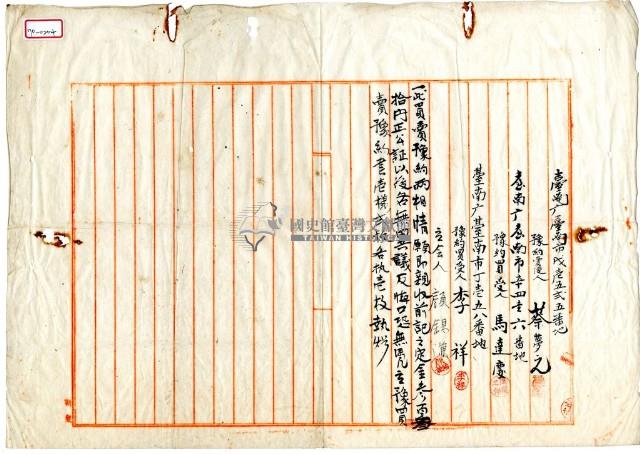 臺南广臺南市戊壱五弍五番地
豫約賣渡人 蔡夢元
臺南广臺南市辛四壱六番地
豫約買受人 馬達慶
臺南广臺南市丁壱五八番地
豫約買受人 李祥
立会人 顏
一此買賣豫約兩相情願即親收前記之定金參百
拾円正公証以後各無異議反悔口恐無憑立豫買
賣豫約書壱樣弍紙各執壱枚執炤
國史館臺灣文獻館
TAIWAN HISTORICA